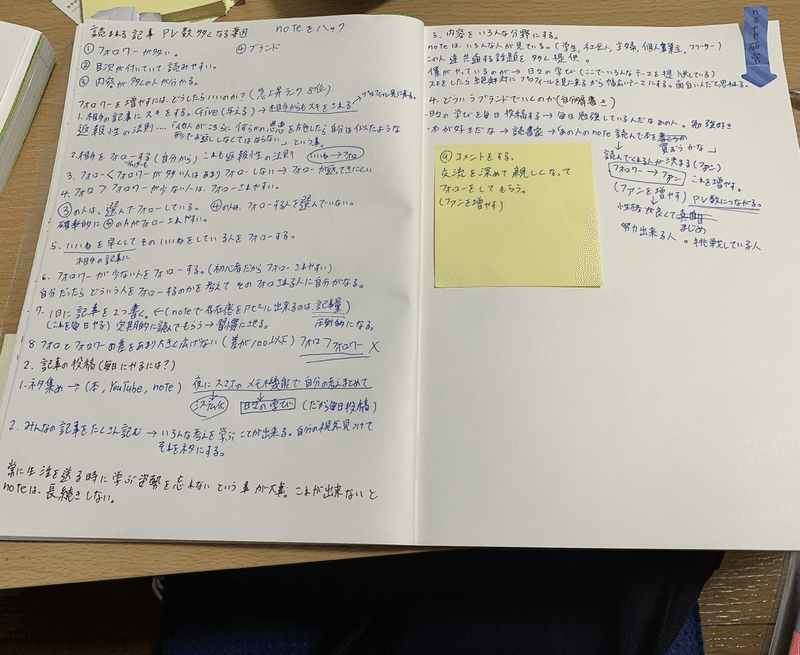 読まれる記事 PV数多くなる要因 noteをハック
① フォロワーが多い。 ④ブランド
② 目次が付いていて読みやすい。
③ 内容が多くの人が分かる。
フォロワーを増やすには、どうしたらいいのか?(急上昇ランク8位)
1.相手の記事にスキをする。Give(与える)→相手からもスキをされる→プロフィール見に来る。
返報性の法則‥‥「他人がこちらに何らかの恩恵を施したら、自分は似たような
形でお返ししなくてはならない」という事。
2.相手をフォローする(自分から)これも返報性の法則 いいね→フォロー
3.フォロー<フォロワーが多い人はあまりフォローしない→フォローが返ってきにくい
4.フォロー>フォロワーが少ない人は、フォローされやすい。
③の人は、選んでフォローしている。 ④の人は、フォローする人を選んでいない。
確率的に④の方がフォローされやすい。
5.いいねを早くしてそのいいねをしている人をフォローする。
相手の記事に
6.フォロワーが少ない人をフォローする。(初心者だからフォローされやすい)
自分だったらどういう人をフォローするのかを考えてそのフォローされる人に自分がなる。
7.1日に記事を2つ書く。←(noteで存在感をアピール出来るのは、記事量)
(これを毎日やる)定期的に読んでもらう→習慣にさせる。 圧倒的になる。
8.フォローとフォロワーの差をあまり大きく広げない(差が100以下)フォロー>フォロワー ×
2.記事の投稿(毎日にやるには?)
1.ネタ集め→(本,YouTube,note) 夜にスマホのメモ機能で自分の考えまとめて
システム化 日々の学び (だから毎日投稿)
2.みんなの記事をたくさん読む→いろんな考えを学ぶことが出来る。自分の視点見つけて
それをネタにする。
常に生活を送る時に学ぶ姿勢を忘れないという事が大事。これが出来ないと
noteは、長続きしない。
note研究
3.内容をいろんな分野にする。
noteは、いろんな人が見ている。(学生,社会人,主婦,個人事業主,フリーター)
この人達共通する話題を多く提供。
僕がやっているのが→日々の学び(ここでいろんなテーマを提供している)
スキをしたら絶対にプロフィールを見に来るから幅広いテーマにする。面白い人だと思わせる。
4.どういうブランドでいくのか(自分の肩書き)
日々の学びを毎日投稿する→毎日勉強しているんだなあの人。勉強好き
・本が好きだな→読書家→あの人のnote読んで本を買おうかな」
読んでくれる人が決まる(ファン)
フォロワー→ファン これを増やす。
(ファンを増やす) PV数につながる。
性格が良くて真面目
まじめ
努力出来る人 。挑戦している人
⑨コメントをする。
交流を深めて親しくなって
フォローをしてもらう。
(ファンを増やす)